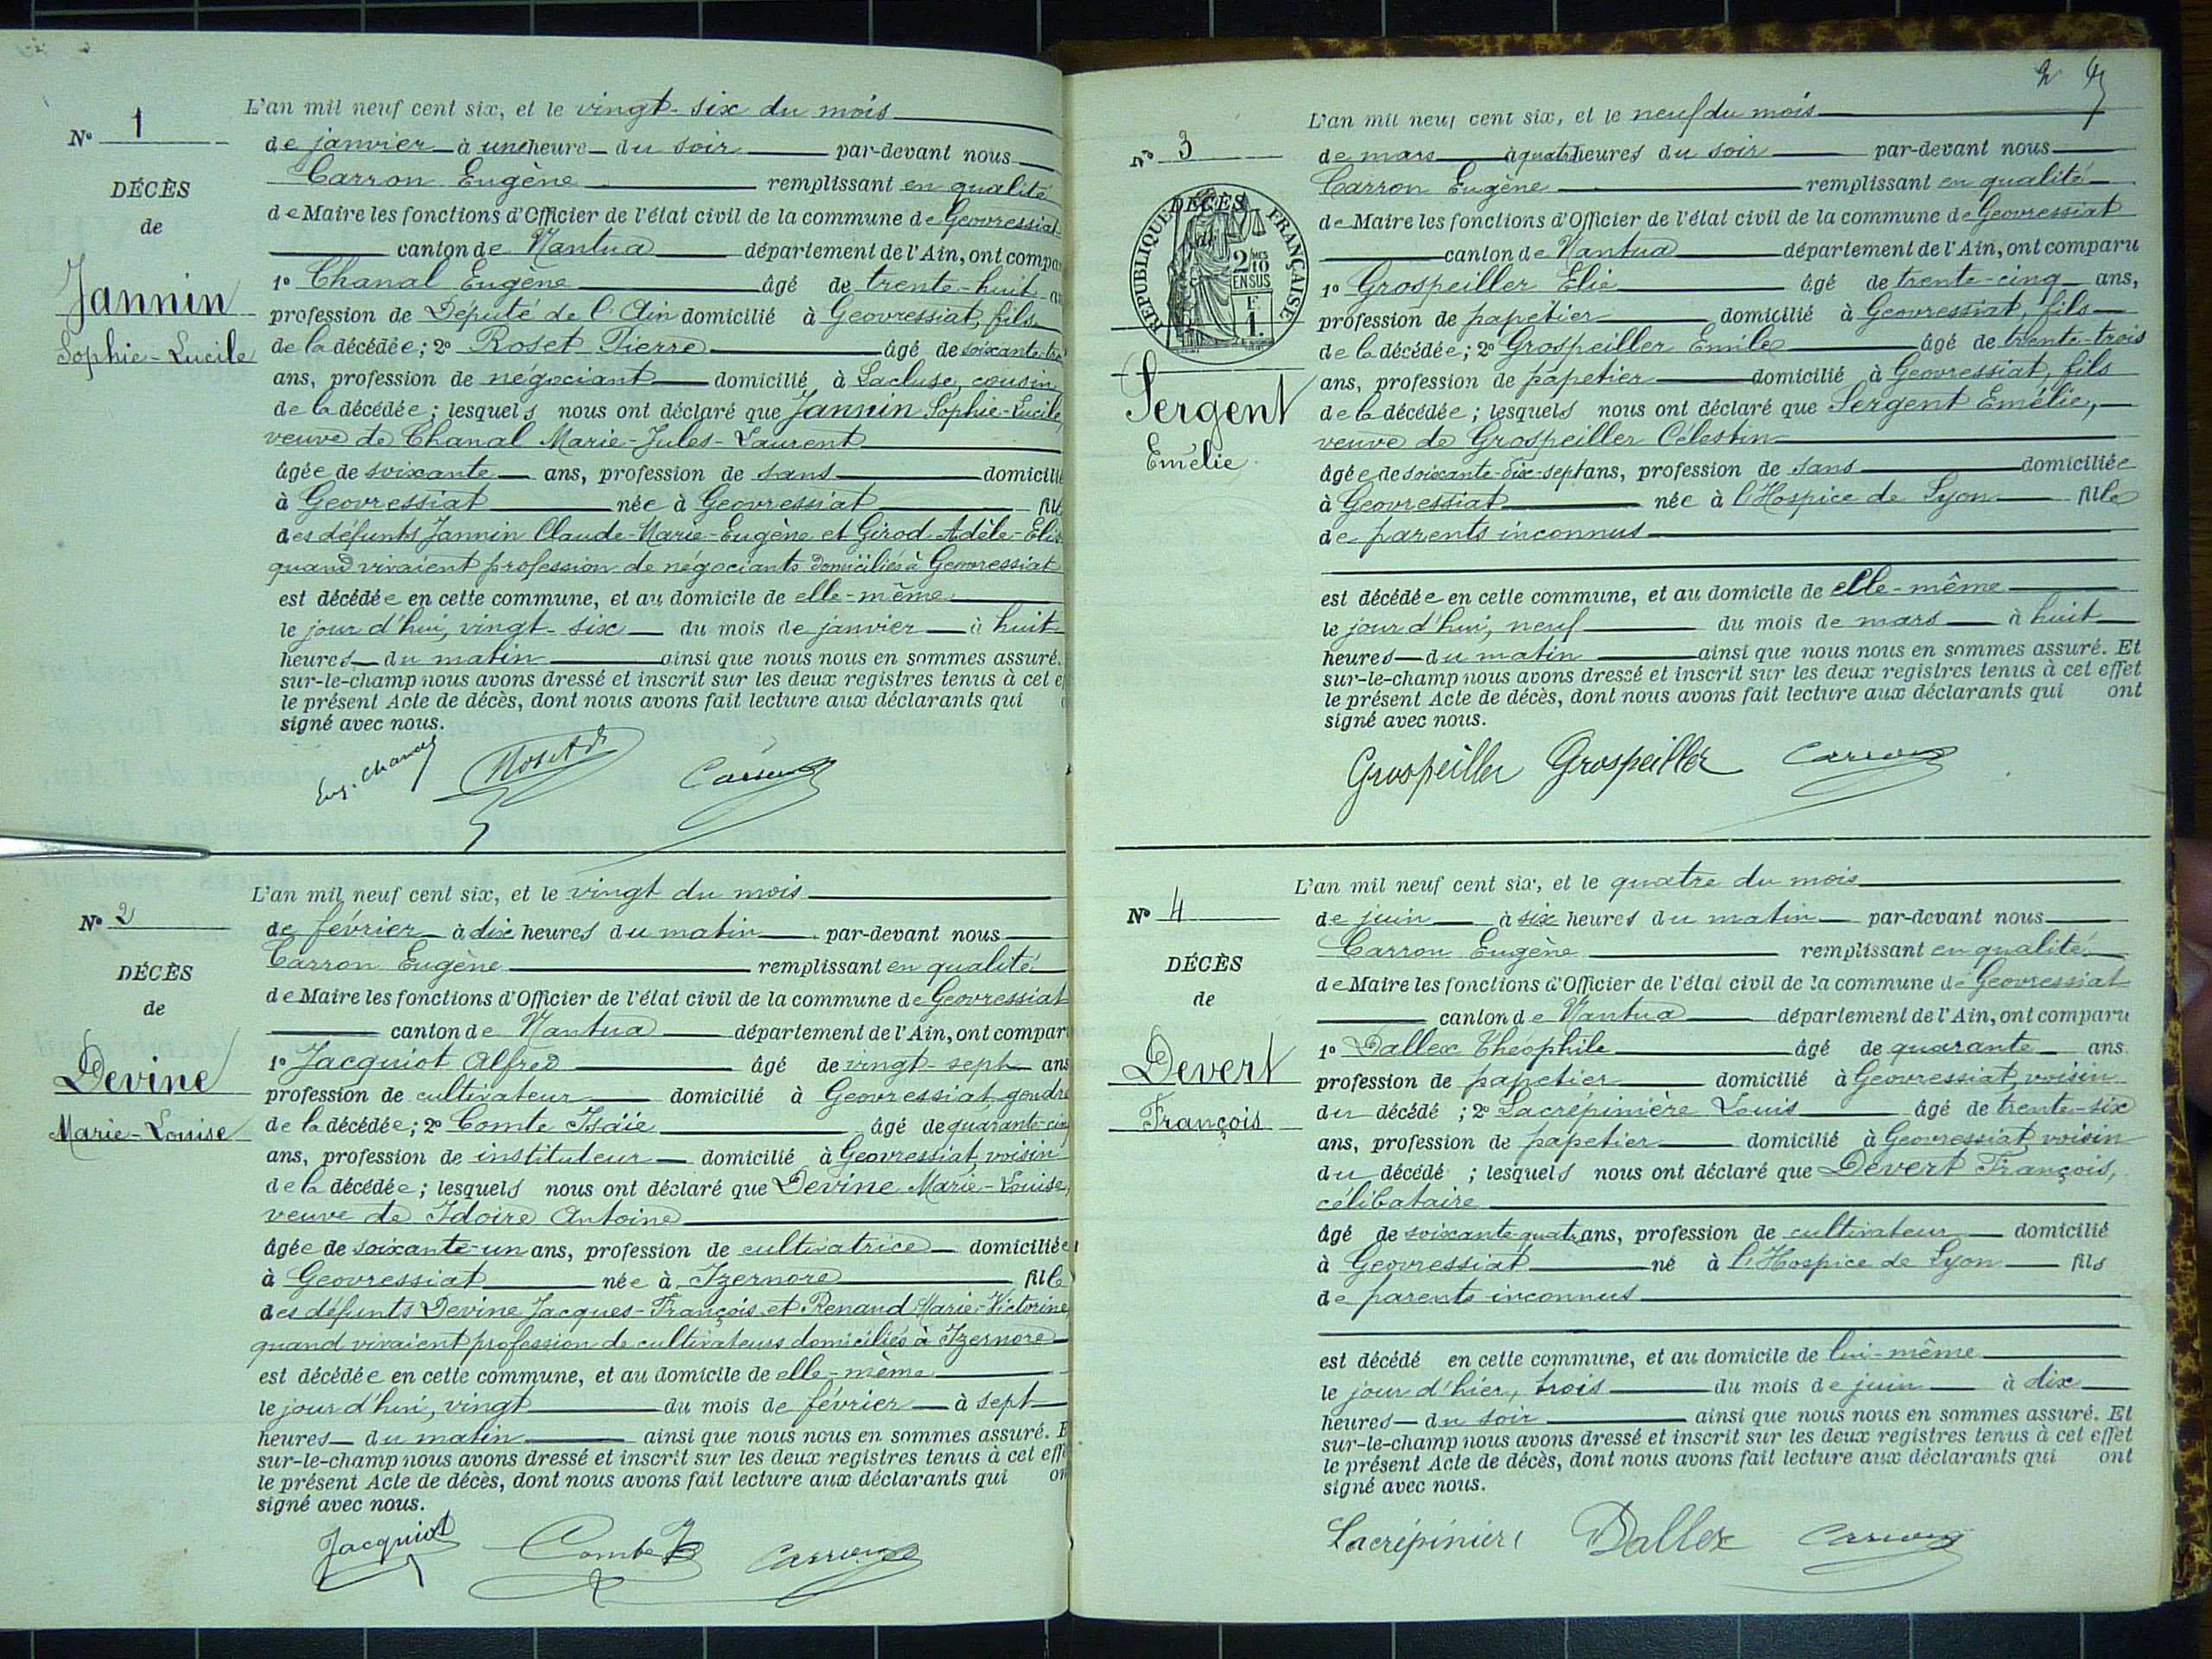 N° 1
DÉCÈS
de
Jannin
Sophie-Lucile
L'an mil neuf cent six, et le vingt-six du mois
de janvier à une heure du soir par-devant nous
Carron Eugène remplissant en qualité
de Maire les fonctions d'Officier de l'état civil de la commune de Geovressiat
canton de Nantua département de l'Ain, ont compa
1° Chanal Eugène âgé de trente-huit an
profession de Député de l'Ain domicilié à Geovressiat, fils
de la décédée; 2° Roset Pierre âgé de soixante-tr
ans, profession de négociant domicilié à Lacluse, cousin
de la décédée; lesquels nous ont déclaré que Jannin Sophie-Lucile,
veuve de Chanal Marie-Jules-Laurent
âgée de soixante ans, profession de sans domicilié
à Geovressiat née à Geovressiat fil
des défunts Jannin Claude-Marie-Eugène et Girod Adèle-Elis
quand vivaient profession de négociants domiciliés à Geovressiat
est décédée en cette commune, et au domicile de elle-même
le jour d'hui, vingt-six du mois de janvier à huit
heures du matin ainsi que nous nous en sommes assuré.
sur-le-champ nous avons dressé et inscrit sur les deux registres tenus à cet e
le présent Acte de décès, dont nous avons fait lecture aux déclarants qui
signé avec nous.
Eug. Chanal Roset Carron
N° 2
DÉCÈS
de
Devine
Marie-Louise
L'an mil neuf cent six, et le vingt du mois
de février à dix heures du matin par-devant nous
Carron Eugène remplissant en qualité
de Maire les fonctions d'Officier de l'état civil de la commune de Geovressiat
canton de Nantua département de l'Ain, ont compar
1° Jacquiot Alfred âgé de vingt-sept ans
profession de cultivateur domicilié à Geovressiat gendre
de la décédée; 2° Comte Isaïe âgé de quarante-cin
ans, profession de instituteur domicilié à Geovressiat, voisin
de la décédée; lesquels nous ont déclaré que Devine Marie-Louise,
veuve de Idoire Antoine
âgée de soixante-un ans, profession de cultivatrice domiciliée
à Geovressiat née à Izernore fille
des défunts Devine Jacques-François et Renaud Marie-Victorine
quand vivaient profession de cultivateurs domiciliés à Izernore
est décédée en cette commune, et au domicile de elle-même
le jour d'hui, vingt du mois de février à sept
heures du matin ainsi que nous nous en sommes assuré. E
sur-le-champ nous avons dressé et inscrit sur les deux registres tenus à cet effe
le présent Acte de décès, dont nous avons fait lecture aux déclarants qui on
signé avec nous.
Jacquiot Comte Carron
2
N° 3
DÉCÈS
de
RÉPUBLIQUE FRANÇAISE
2/10 EN SUS
F 1.
Sergent
Emélie
L'an mil neuf cent six, et le neuf du mois
de mars à quatre heures du soir par-devant nous
Carron Eugène remplissant en qualité
de Maire les fonctions d'Officier de l'état civil de la commune de Geovressiat
canton de Nantua département de l'Ain, ont comparu
1° Grospeiller Elie âgé de trente-cinq ans,
profession de papetier domicilié à Geovressiat, fils
de la décédée; 2° Grospeiller Emile âgé de trente-trois
ans, profession de papetier domicilié à Geovressiat, fils
de la décédée; lesquels nous ont déclaré que Sergent Emélie,
veuve de Grospeiller Célestin
âgée de soixante-dix-sept ans, profession de sans domiciliée
à Geovressiat née à l'Hospice de Lyon fille
de parents inconnus
est décédée en cette commune, et au domicile de elle-même
le jour d'hui, neuf du mois de mars à huit
heures du matin ainsi que nous nous en sommes assuré. Et
sur-le-champ nous avons dressé et inscrit sur les deux registres tenus à cet effet
le présent Acte de décès, dont nous avons fait lecture aux déclarants qui ont
signé avec nous.
Grospeiller Grospeiller Carron
N° 4
DÉCÈS
de
Devert
François
L'an mil neuf cent six, et le quatre du mois
de juin à six heures du matin par-devant nous
Carron Eugène remplissant en qualité
de Maire les fonctions d'Officier de l'état civil de la commune de Geovressiat
canton de Nantua département de l'Ain, ont comparu
1° Dallex Théophile âgé de quarante ans.
profession de papetier domicilié à Geovressiat, voisin
du décédé ; 2° Lacrépinière Louis âgé de trente-six
ans, profession de papetier domicilié à Geovressiat, voisin
du décédé ; lesquels nous ont déclaré que Devert François,
célibataire
âgé de soixante-quatre ans, profession de cultivateur domicilié
à Geovressiat né à l'Hospice de Lyon fils
de parents inconnus
est décédé en cette commune, et au domicile de lui-même
le jour d'hier, trois du mois de juin à dix
heures du soir ainsi que nous nous en sommes assuré. Et
sur-le-champ nous avons dressé et inscrit sur les deux registres tenus à cet effet
le présent Acte de décès, dont nous avons fait lecture aux déclarants qui ont
signé avec nous.
Lacrépinière Dallex Carron